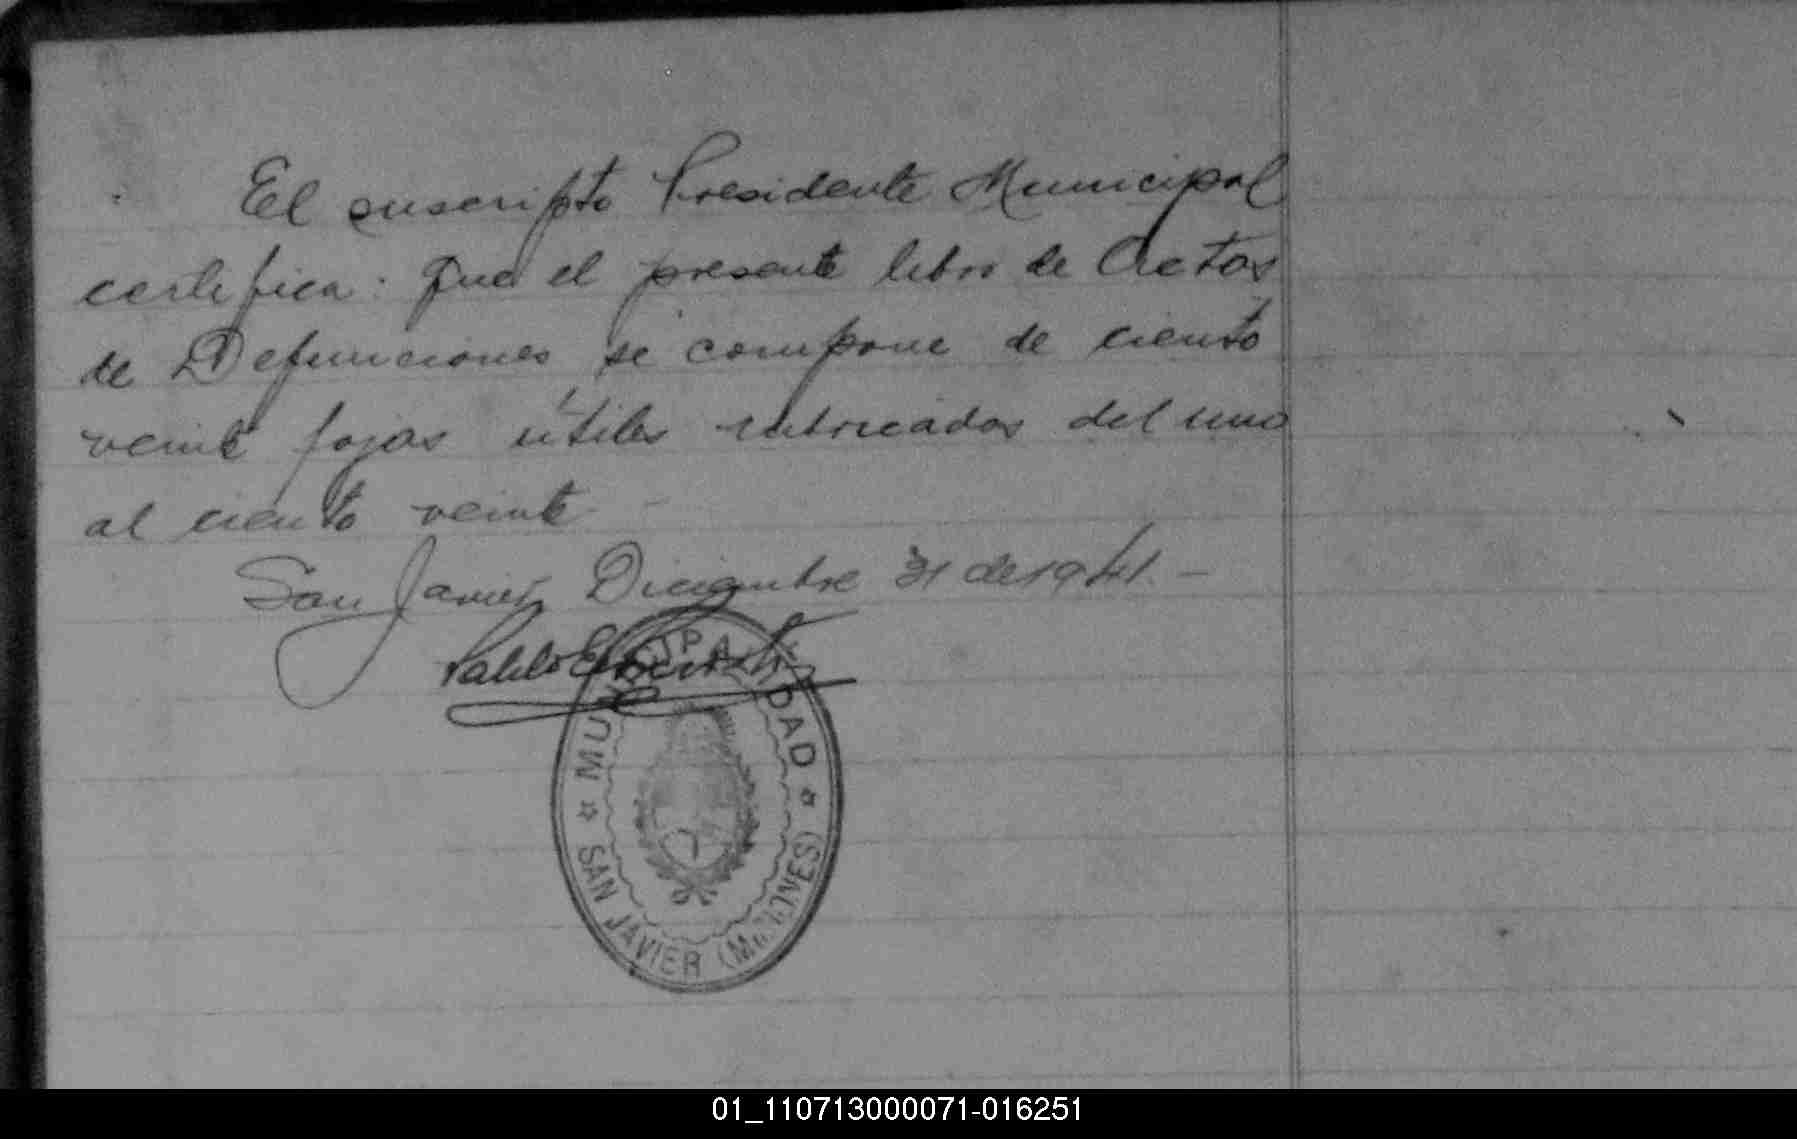 El suscripto Presidente Municipal
certifica: Que el presente libro de Actas
de Defunciones se compone de ciento
veinte fojas útiles rubricadas del uno
al ciento veinte
San Javier, Diciembre 31 de 1941.-
Pablo E.
MUNICIPALIDAD
SAN JAVIER (MISIONES)
01_110713000071-016251